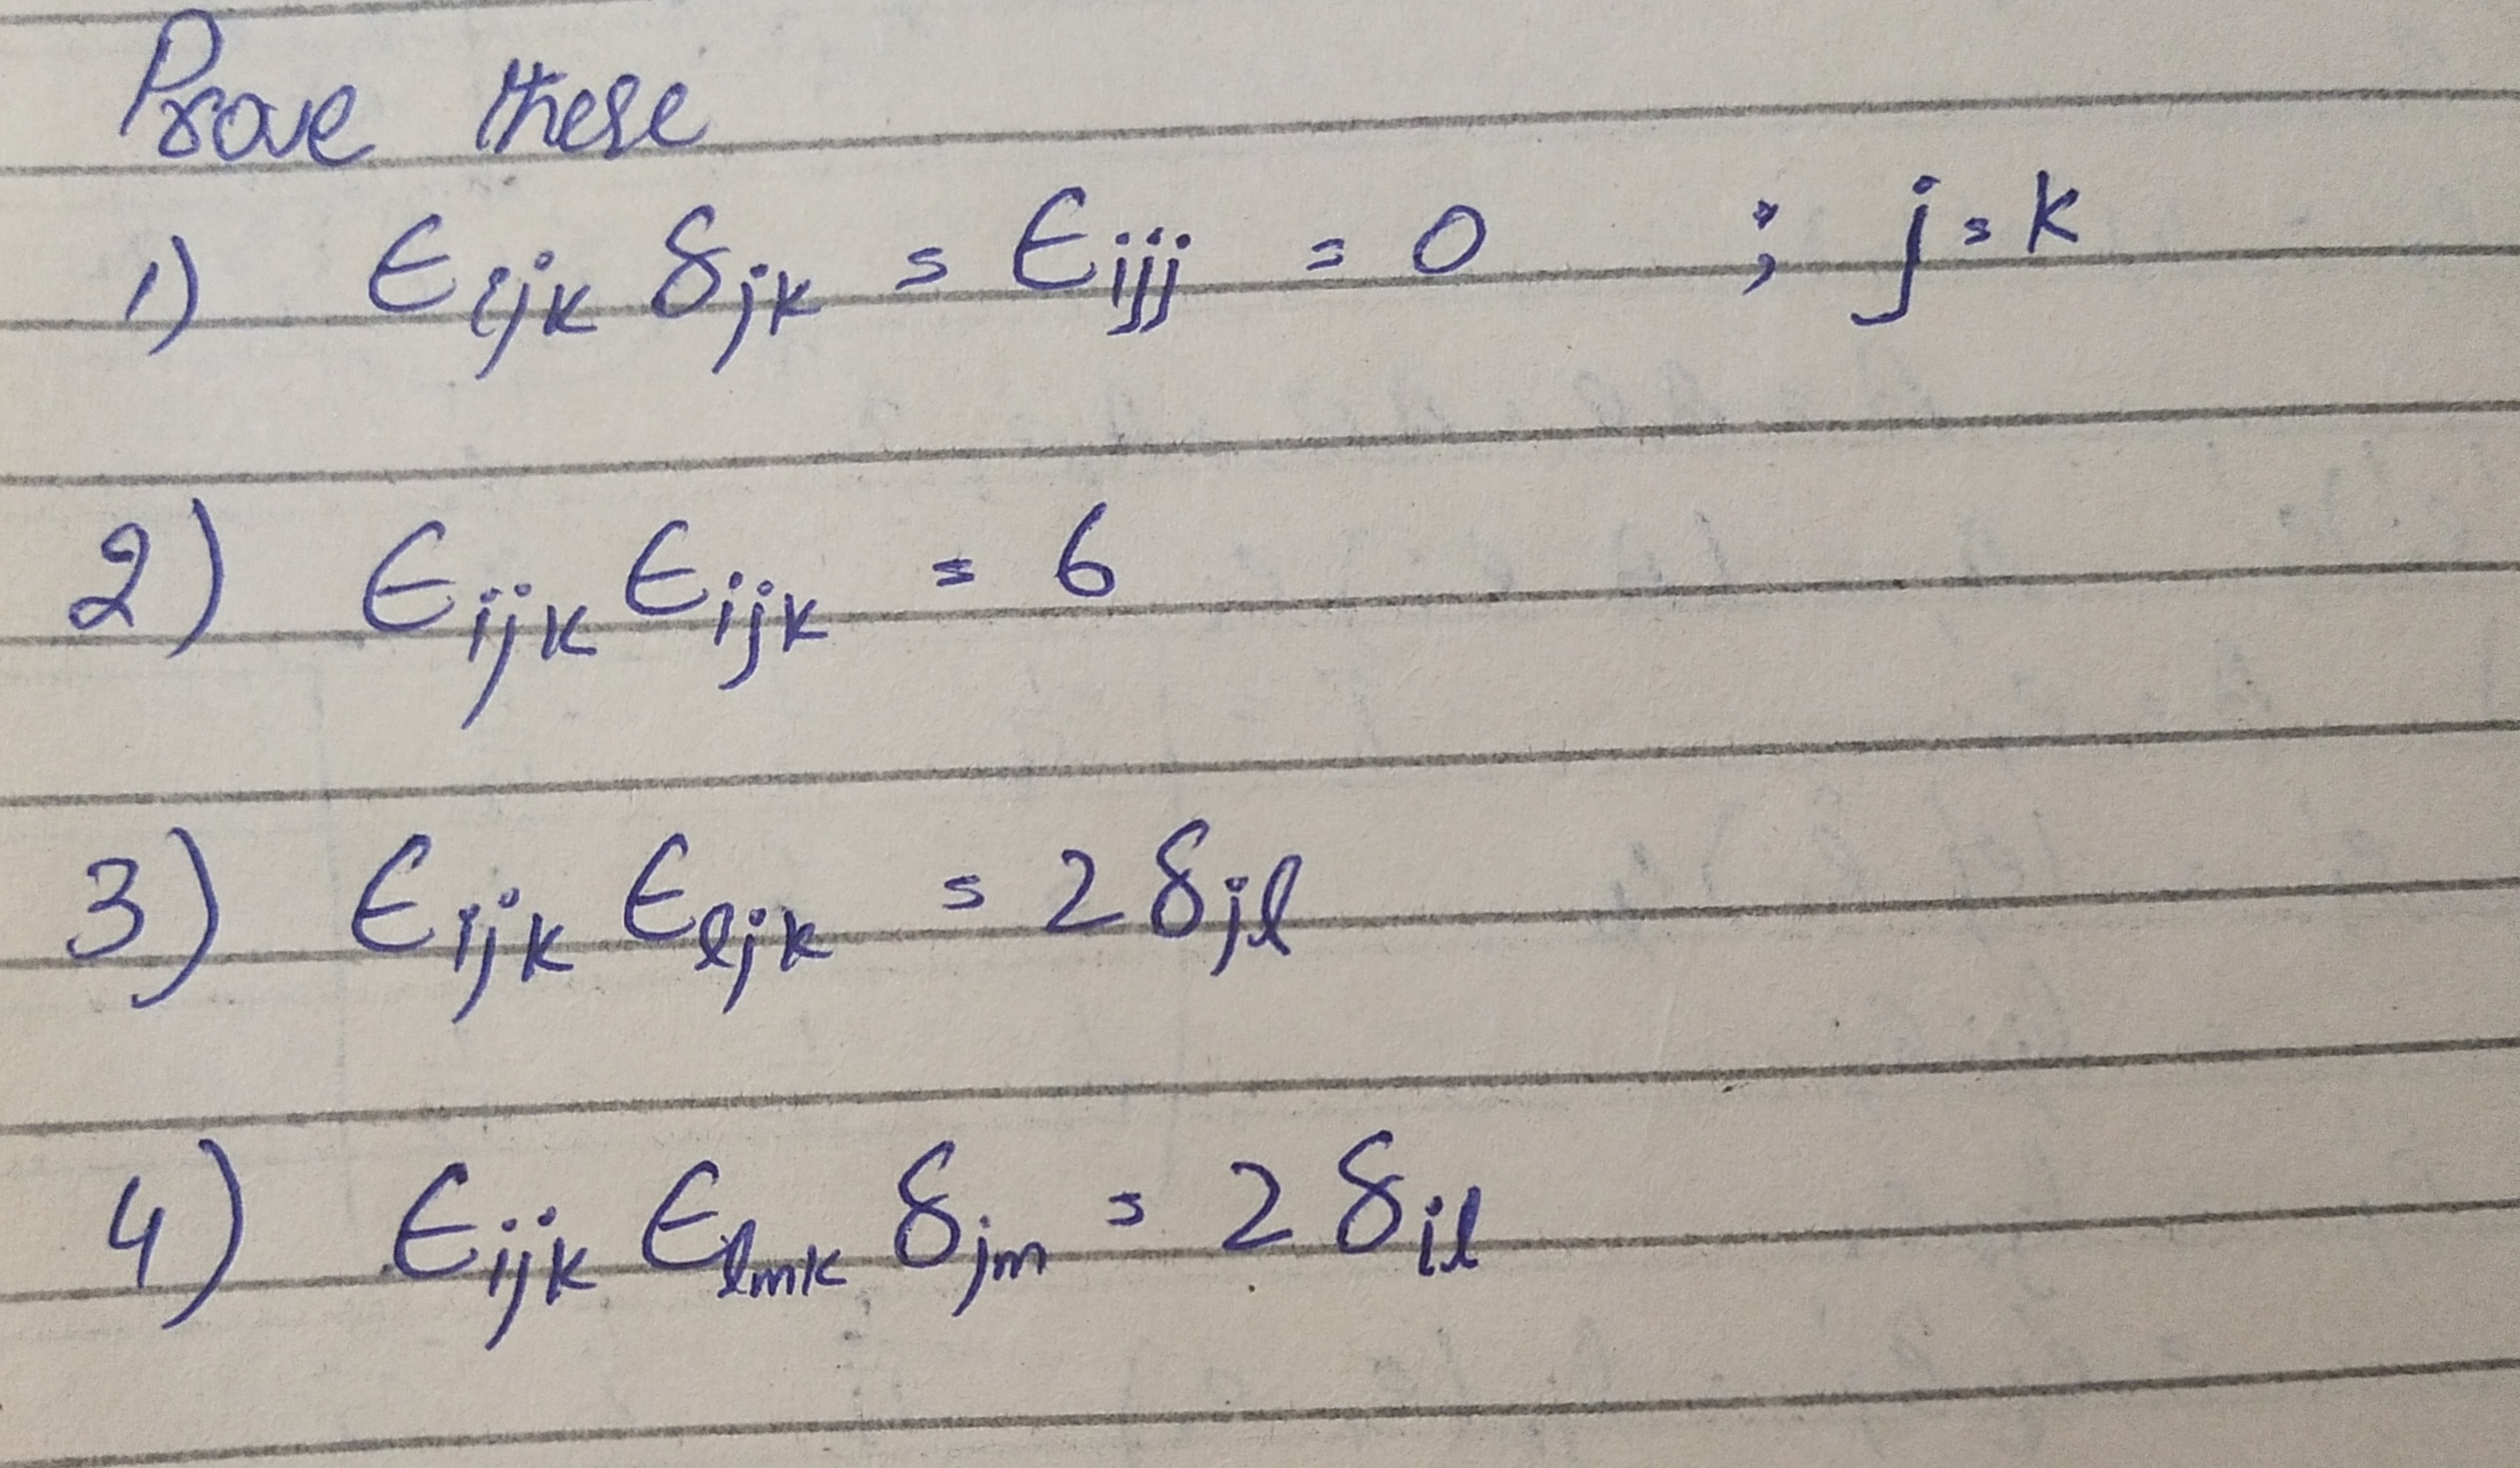 Prove these
1) ϵijk δjk = ϵijj = 0 ; j=k
2) ϵijk ϵijk = 6
3) ϵijk ϵljk = 2δjl
4) ϵijk ϵlmk δjm = 2δil